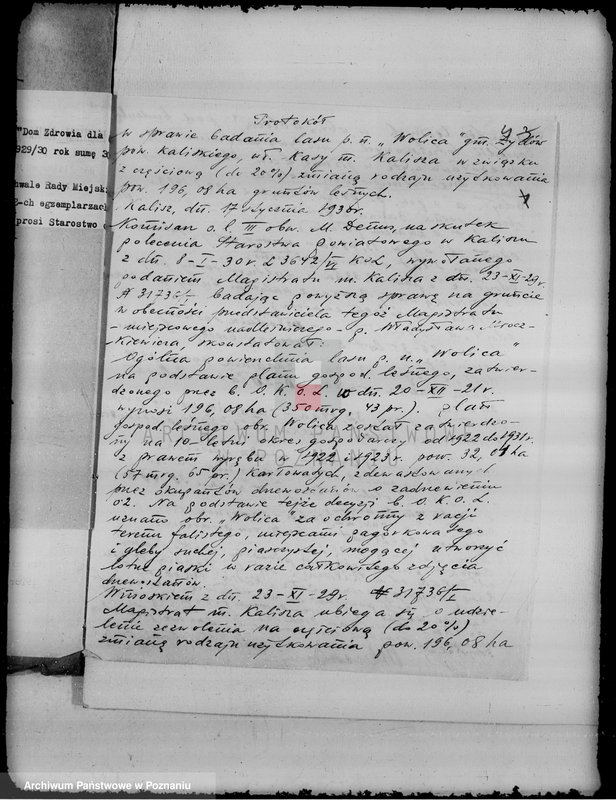 "Dom Zdrowia dla
929/30 rok sumę 3
chwale Rady Miejsk
2-ch egzemplarzach
prosi Starostwo
Protokół
w sprawie badania lasu p. n. „Wolica" gm. Żydów
pow. Kaliskiego, wł. Kasy m. Kalisza w związku
z częściową (do 20%) zmianą rodzaju użytkowania
pow. 196,08 ha gruntów leśnych.
Kalisz, dn. 17 stycznia 1930 r.
Komisarz o. l. III obw. M. na skutek
polecenia Starostwa Powiatowego w Kaliszu
z dn. 8-I-30 r. L 3642/VI KoL, wywołanego
podaniem Magistratu m. Kalisza z dn. 23-XI-29 r.
№ 31736/I badając powyższą sprawę na gruncie
w obecności przedstawiciela tegoż Magistratu
- miejscowego nadleśniczego - p. Władysława Mrocz-
kiewicza, skonstatował:
Ogólna powierzchnia lasu p. n. „Wolica"
na podstawie planu gospod. leśnego, zatwier-
dzonego przez b. O. K. O. L. w dn. 20-XII-21 r.
wynosi 196,08 ha (350 mrg. 43 pr.). Plan
gospod. leśnego obr. Wolica został zatwierdzo-
ny na 10-letni okres gospodarczy od 1922 do 1931 r.
z prawem wyrębu w 1922 i 1923 r. pow. 32, ha
(57 mrg. 65 pr.) karłowatych, zdewastowanych
przez okupantów drzewostanów o zadrzewieniu
0.2. Na podstawie tejże decyzji b. O. K. O. L.
uznano obr. „Wolica" za ochronny z racji
terenu falistego, miejscami pagórkowatego
i gleby suchej, piaszczystej, mogącej utworzyć
lotne piaski w razie całkowitego zdjęcia
drzewostanów.
Wnioskiem z dn. 23-XI-29 r. № 31736/I
Magistrat m. Kalisza ubiega się o udzie-
lenie zezwolenia na częściową (do 20%)
zmianę rodzaju użytkowania pow. 196,08 ha
ARCHIWUM PAŃSTWOWE
W POZNANIU
Archiwum Państwowe w Poznaniu